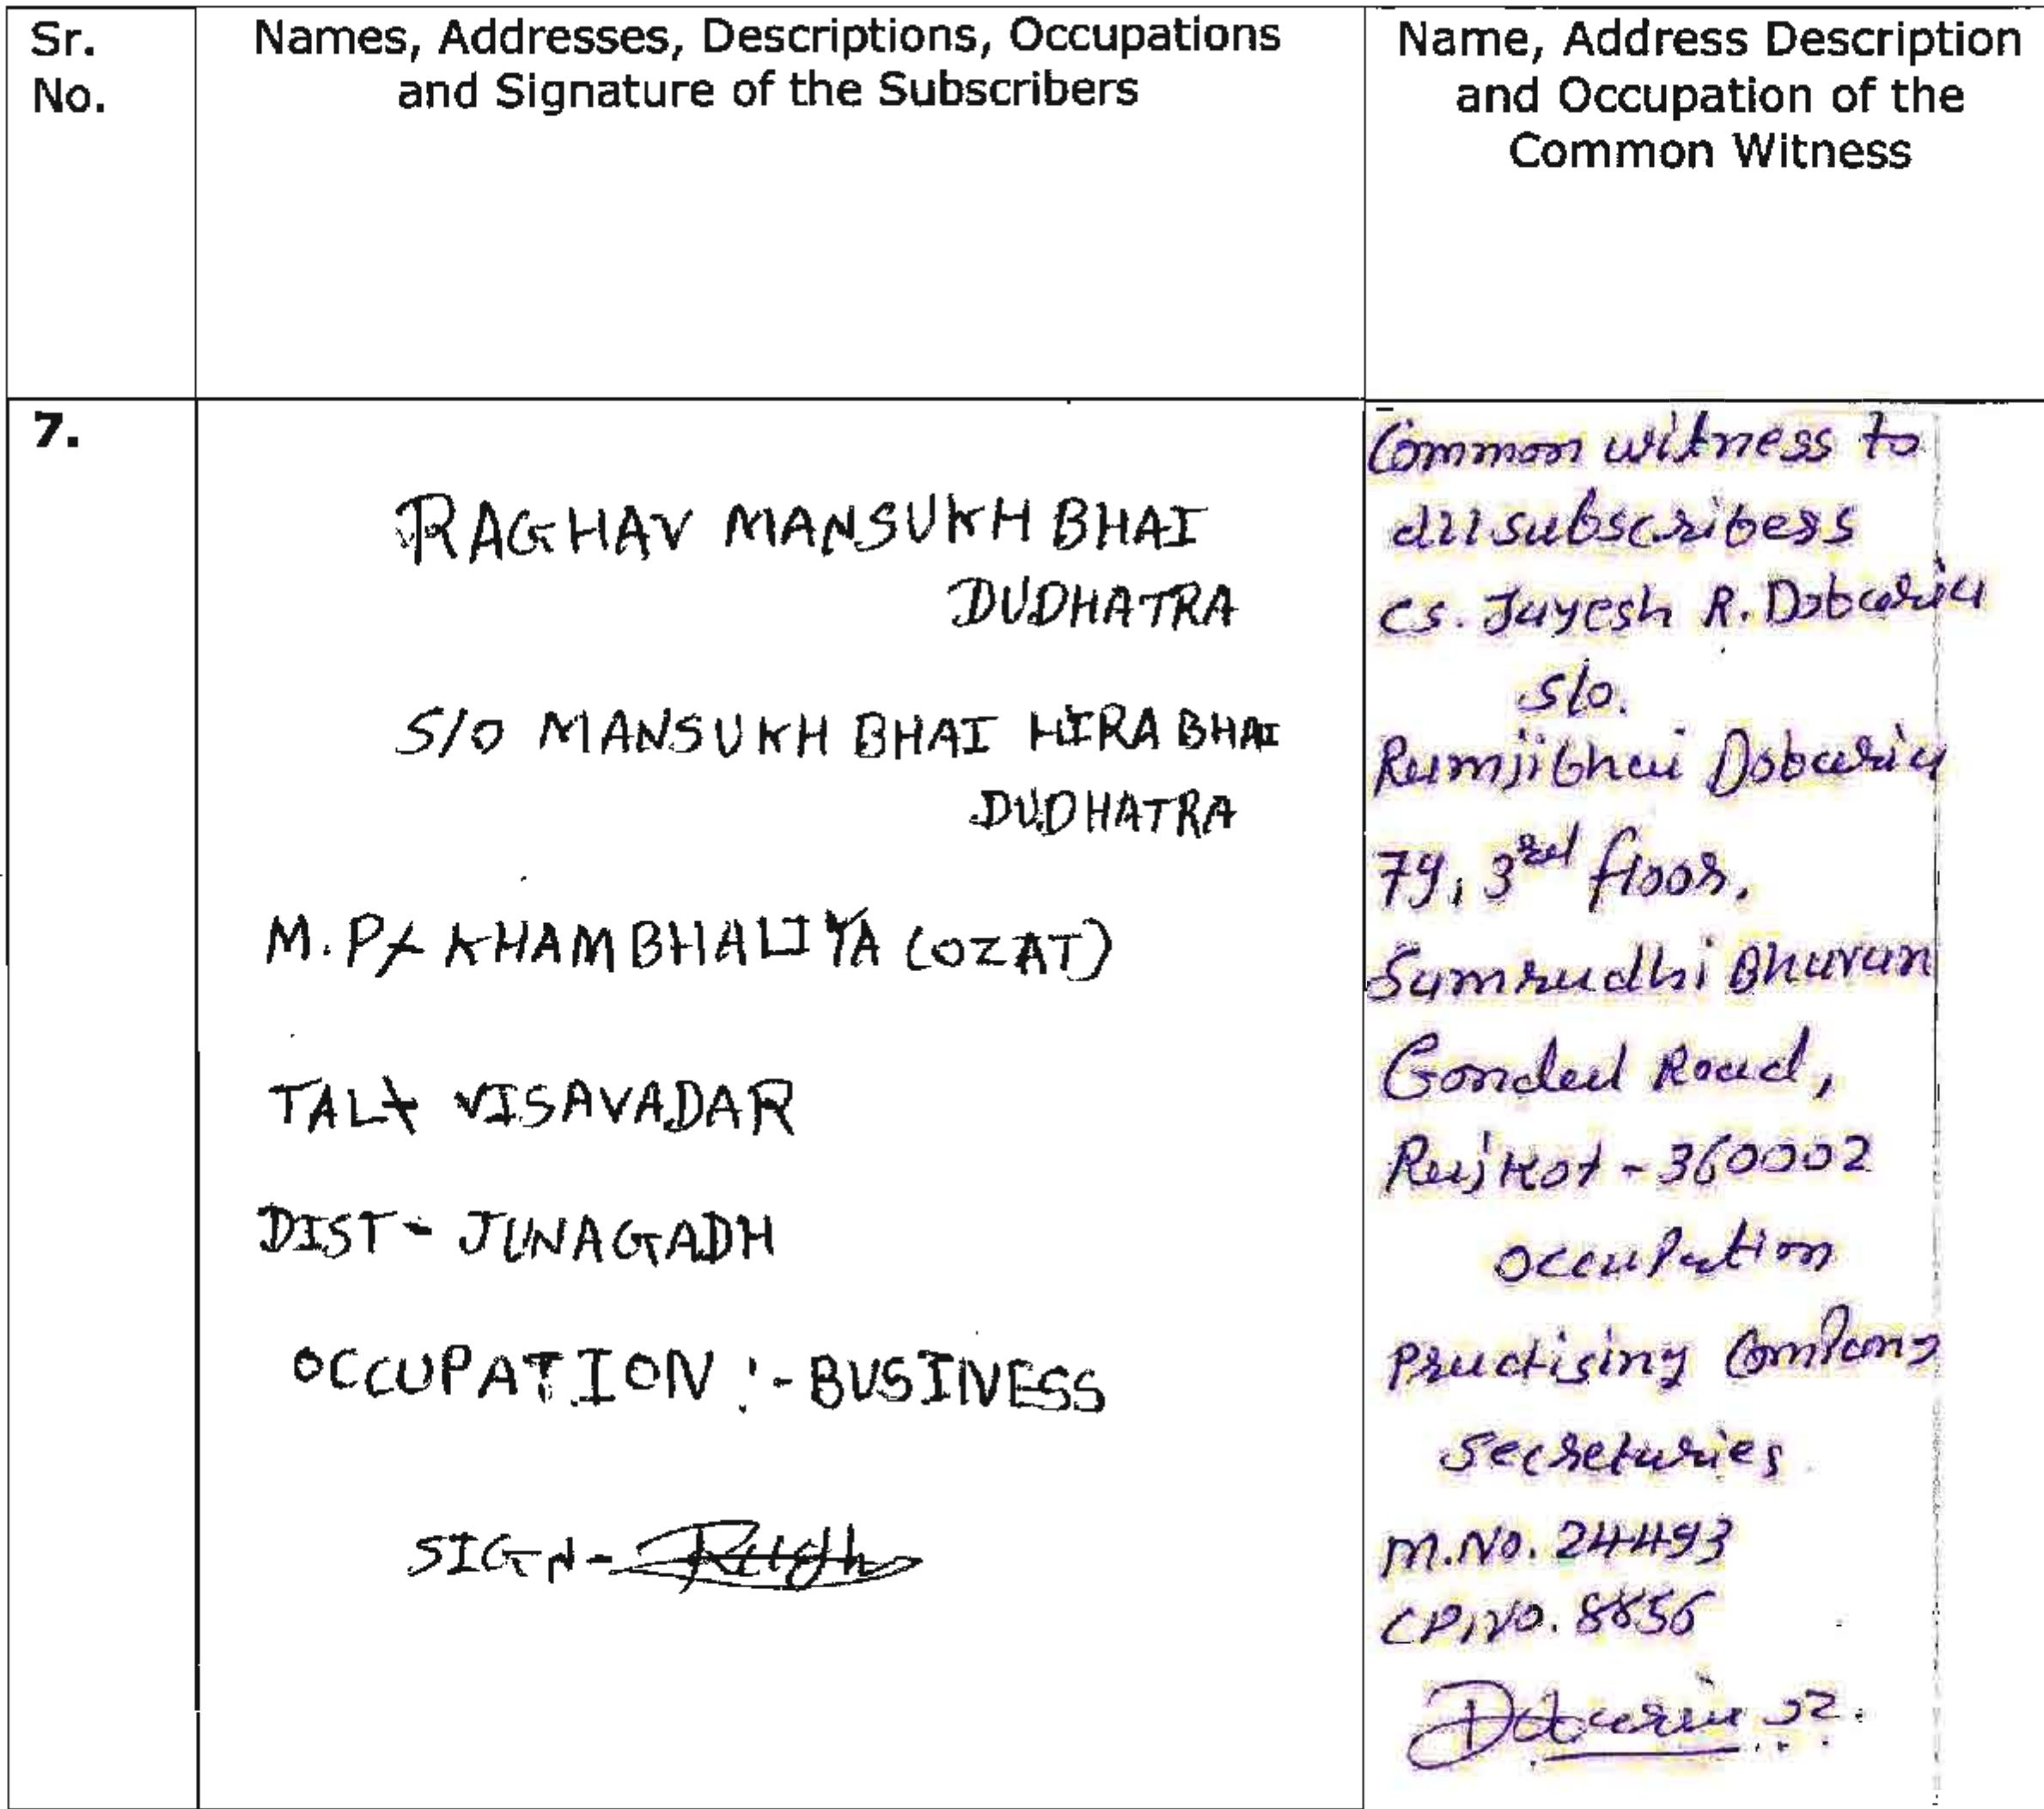 Sr.
No.
Names, Addresses, Descriptions, Occupations
and Signature of the Subscribers
Name, Address Description
and Occupation of the
Common Witness
7.
RAGHAV MANSUKH BHAI
DUDHATRA
S/O MANSUKH BHAI HIRA BHAI
DUDHATRA
M.P/ KHAMBHALIYA (OZAT)
TAL VISAVADAR
DIST - JUNAGADH
OCCUPATION :- BUSINESS
SIGN -
Common witness to
all subscribers
CS. Jayesh R. Dobaria
S/o.
Ramjibhai Dobaria
79, 3rd floor,
Samrudhi Bhavan
Gondal Road,
Rajkot - 360002
Occupation
Practising Company
Secretaries
M.No. 24493
CP.NO. 8856